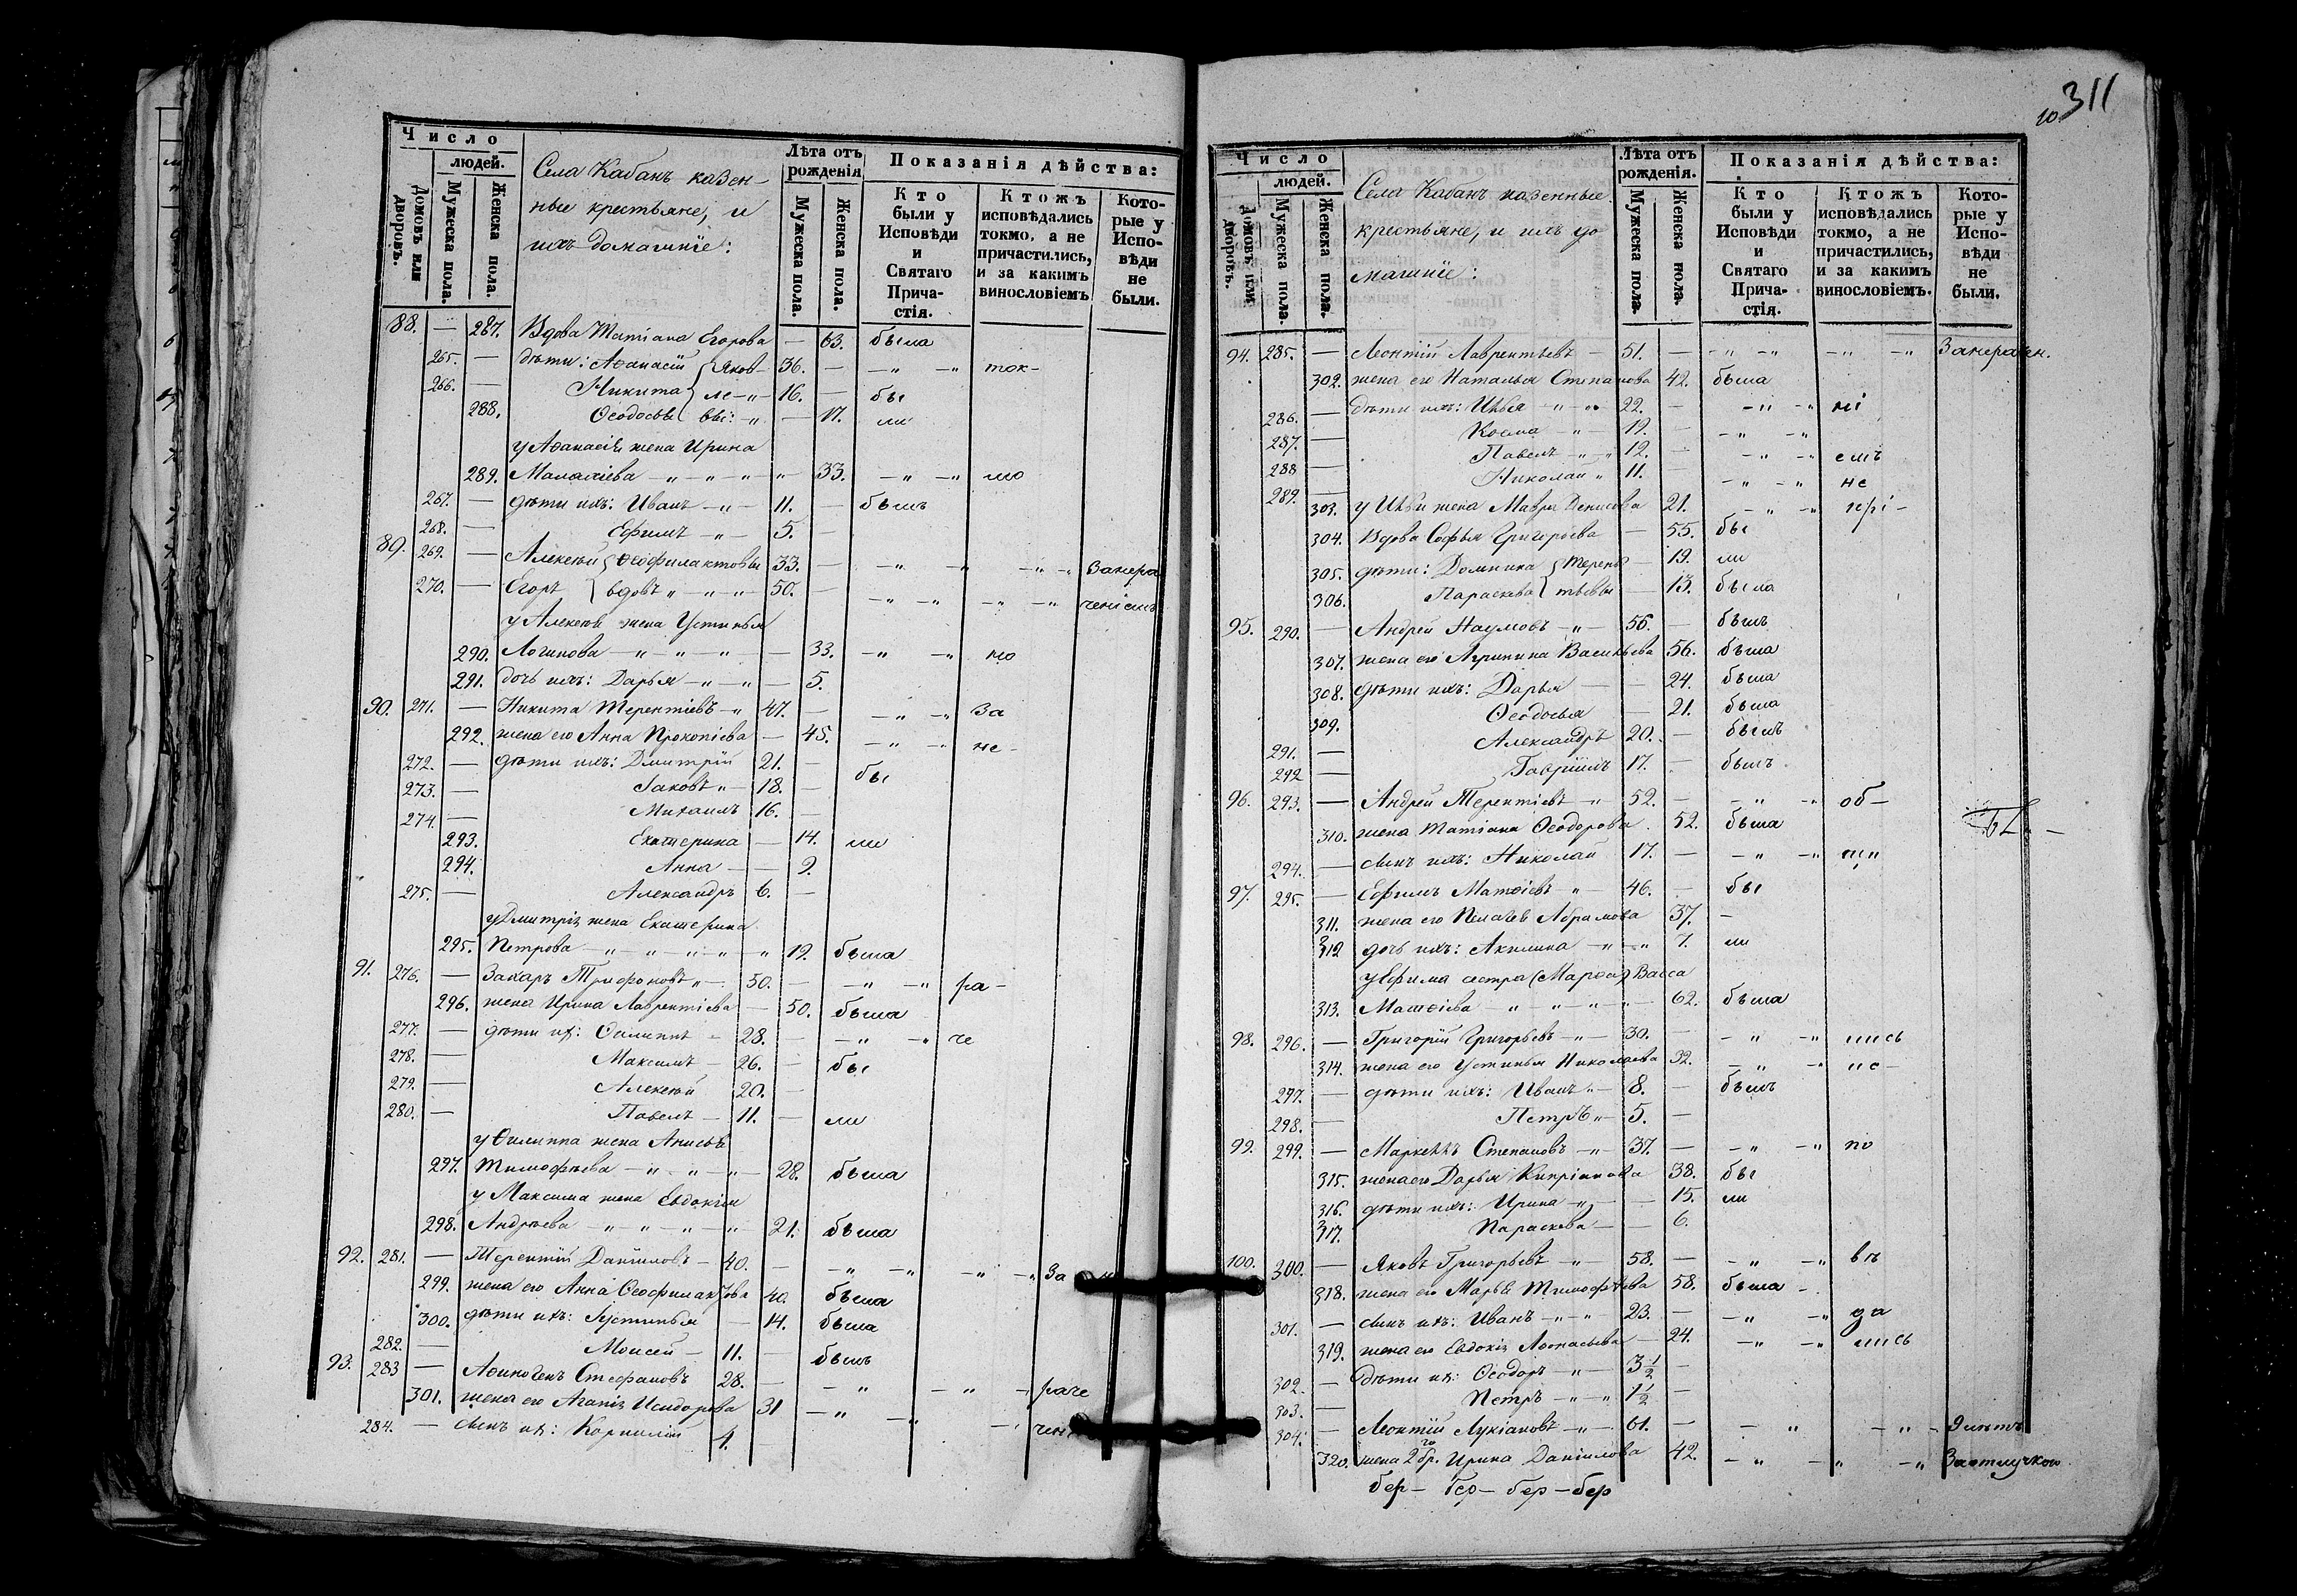 Число
людей.
Домовъ или дворовъ.
Мужеска пола.
Женска пола.
Села Кабанъ казен-
ные крестьяне, и
ихъ домашніе:
Лѣта отъ рожденія
Мужеска пола.
Женска пола.
Показанія дѣйства:
Кто были у Исповѣди и Святаго Прича-стія.
Ктожъ исповѣдались токмо, а не причастились, и за какимъ винословіемъ
Кото-рые у Испо-вѣди не были.
88. — 287. Вдова Татіана Егорова — 63. была
265. — дѣти: Аѳанасій Яков- 36. — -"- -" ток-
266. — Никита ле -"- 16. — бы
288. Ѳеодосья вы: -"- — 17. ли
у Аѳанасія жена Ирина
289. Малахіева -"-"-" " 33. -"- -"
267. — дѣти ихъ: Иванъ -"- 11. — былъ
268. — Ефимъ -"- 5. —
89. 269. — Алексѣй Ѳеофилактовы 33. — -" -" -"-"
270. — Егоръ вдовъ "-"-"- 50. — -"-" -"-"
у Алексѣя жена Устинья
290. Логинова -"-"-"- — 33. -" -"
291. дочь ихъ: Дарья -"-"- — 5.
90. 271. — Никита Терентіевъ -" 47. — -"-" за
292. жена его Анна Прокопіева — 45. -"-" не-
272. — дѣти ихъ: Дмитрій 21. — бы
273. — Іаковъ "- 18. —
274. — Михаилъ 16. —
293. Екатерина — 14. ли
294. Анна — — 9.
275. — Александръ 6. —
у Дмитрія жена Екатерина
295. Петрова -"-"-"-"- " 19. была
91. 276. — Захаръ Трифоновъ "- 50. — -" -" ра-
296. жена Ирина Лаврентіева — 50. была
277. — дѣти их: Филиппъ - 28. — -" -" че
278. — Максимъ - 26. — бы
279. — Алексѣй 20. —
280. — Павелъ - 11. — ли
у Филиппа жена Анисья
297. Тимофѣева -"-"-"- 28. была
у Максима жена Евдокія
298. Андреева -"-"-"-" 21. была
92. 281. — Терентій Даниловъ - 40. — -" -" -" -" За
299. жена его Анна Ѳеофилактова 40. была
300. дѣти их: Устинья — 14. была
282. — Моисей - 11. — былъ
93. 283 — Аѳиногенъ Стефановъ 28. — -" -" - раче
301. жена его Агапія Исидорова 31 -" -"
284. — сынъ их: Корнилій
311
Число
людей.
Домовъ или дворовъ.
Мужеска пола.
Женска пола.
Села Кабанъ казенные
крестьяне, и ихъ до
машніе:
Лѣта отъ рожденія.
Мужеска пола.
Женска пола.
Показанія дѣйства:
Кто были у Исповѣди и Святаго Прича-стія.
Ктожъ исповѣдались токмо, а не причастились, и за какимъ винословіемъ.
Кото-рые у Испо-вѣди не были.
94. 285. — Леонтій Лаврентьевъ - 51. — -"-" -"-"
302. жена его Наталья Степанова 42. была
286. — дѣти ихъ: -"-" 22. — -"-" ні
287. — Косма -"- 19. — -"-"
288 — Павелъ -"-" 12. — -"-" емъ
289. — Николай " 11. — -"-" не
303. жена Мавра Денисова 21. -"-" прі-
304. Вдова Софья Григорьева — 55. бы
305. дѣти: Домника Терень — 19. ли
306. Параскева тьевы — 13. была
95. 290. — Андрей Наумовъ -"- 56. — былъ
307. жена его Агрипина Васильева 56. была
308. дѣти ихъ: Дарья — — 24. была
309. Ѳеодосья — 21. была
291. — Александръ 20. — былъ
292 — Гавріилъ 17. — былъ
96. 293. — Андрей Терентіевъ -" 52. — -" -" об-
310. жена Татіана Ѳеодорова 52. была
294. — сынъ ихъ: Николай 17. — -" -"
97. 295. — Ефимъ Матѳіевъ -" 46. — бы
311. жена его Пелагея Абрамова 37. —
312 дочь ихъ: Акилина -"-" 7. ли
у Ефима сестра (Марѳа) Васса
313. Матѳіева -"-"-"-" 62. была
98. 296. — Григорій Григорьевъ -"- 30. — -" -" лись
314. жена его Устинья Николаева 32. -" -"
297. — дѣти ихъ: Иванъ "- 8. — былъ
298. — Петръ "- 5. —
99. 299. — Маркеллъ Степановъ -"- 37. — -" -" по
315. жена его Дарья Кипріанова 38. бы
316. дѣти ихъ: Ирина -"- — 15. ли
317. Параскева — — 6.
100. 300. — Яковъ Григорьевъ -" 58. — -" -" въ
318. жена его Марья Тимофѣева 58. была -
301. — сынъ их: Иванъ -"-" 23. — -" -" да
319. жена его Евдокія Аѳонасьева - 24. -" -" лись
302. — дѣти их: Ѳеодоръ -" 3 1/2 —
303. — Петръ -"-" 1 1/2 —
304. — Леонтій Лукіановъ -"- 61. — - " -"-
320. жена 2го бр. Ирина Даніилова 42. -" -" -" За отлучкою
бер- бер- бер-бер